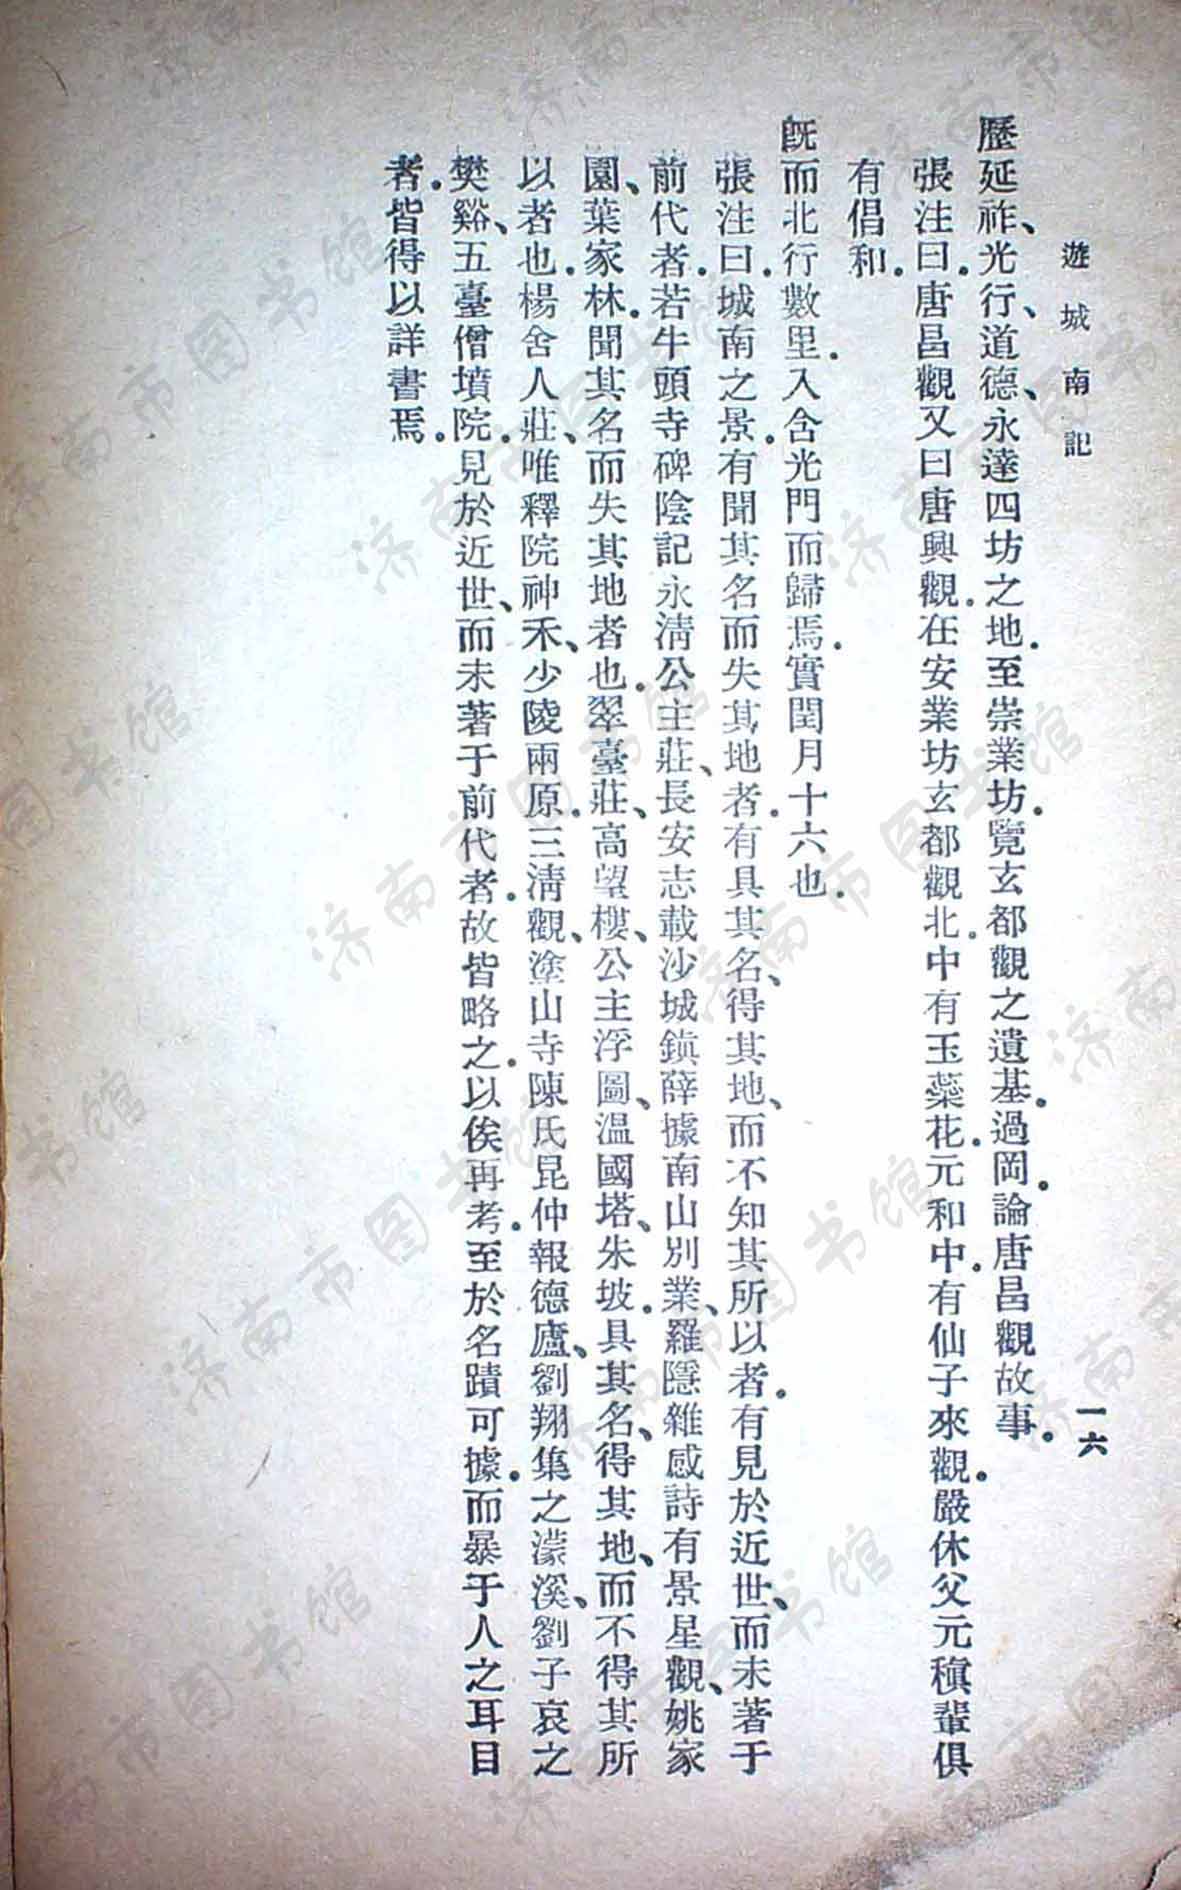 遊城南記
一六
歷延祚、光行、道德、永達四坊之地。至崇業坊。覽玄都觀之遺基。過岡。論唐昌觀故事。
張注曰。唐昌觀又曰唐興觀。在安業坊玄都觀北。中有玉蘂花。元和中。有仙子來觀。嚴休父元稹輩俱
有倡和。
既而北行數里。入含光門而歸焉。實閏月十六也。
張注曰。城南之景。有聞其名而失其地者。有具其名、得其地、而不知其所以者。有見於近世、而未著于
前代者。若牛頭寺碑陰記永清公主莊、長安志載沙城鎮薛據南山別業、羅隱雜感詩有景星觀、姚家
園、葉家林。聞其名而失其地者也。翠臺莊、高望樓、公主浮圖、溫國塔、朱坡。具其名、得其地、而不得其所
以者也。楊舍人莊、唯釋院神禾、少陵兩原。三清觀、塗山寺陳氏昆仲報德廬、劉翔集之濛溪、劉子哀之
樊谿、五臺僧墳院。見於近世、而未著于前代者。故皆略之。以俟再考。至於名蹟可據。而暴于人之耳目
者。皆得以詳書焉。
济南市图书馆